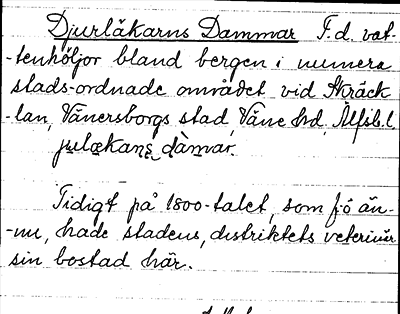 Djurläkarns Dammar F.d. vat-
-tenhöljor bland bergen i numera
stads-ordnade området vid Skräck
-lan, Vänersborgs stad, Väne hd, Älfsb.l.
Tidigt på 1800-talet, som fö än-
-nu, hade stadens, distriktets veterinär
sin bostad här.